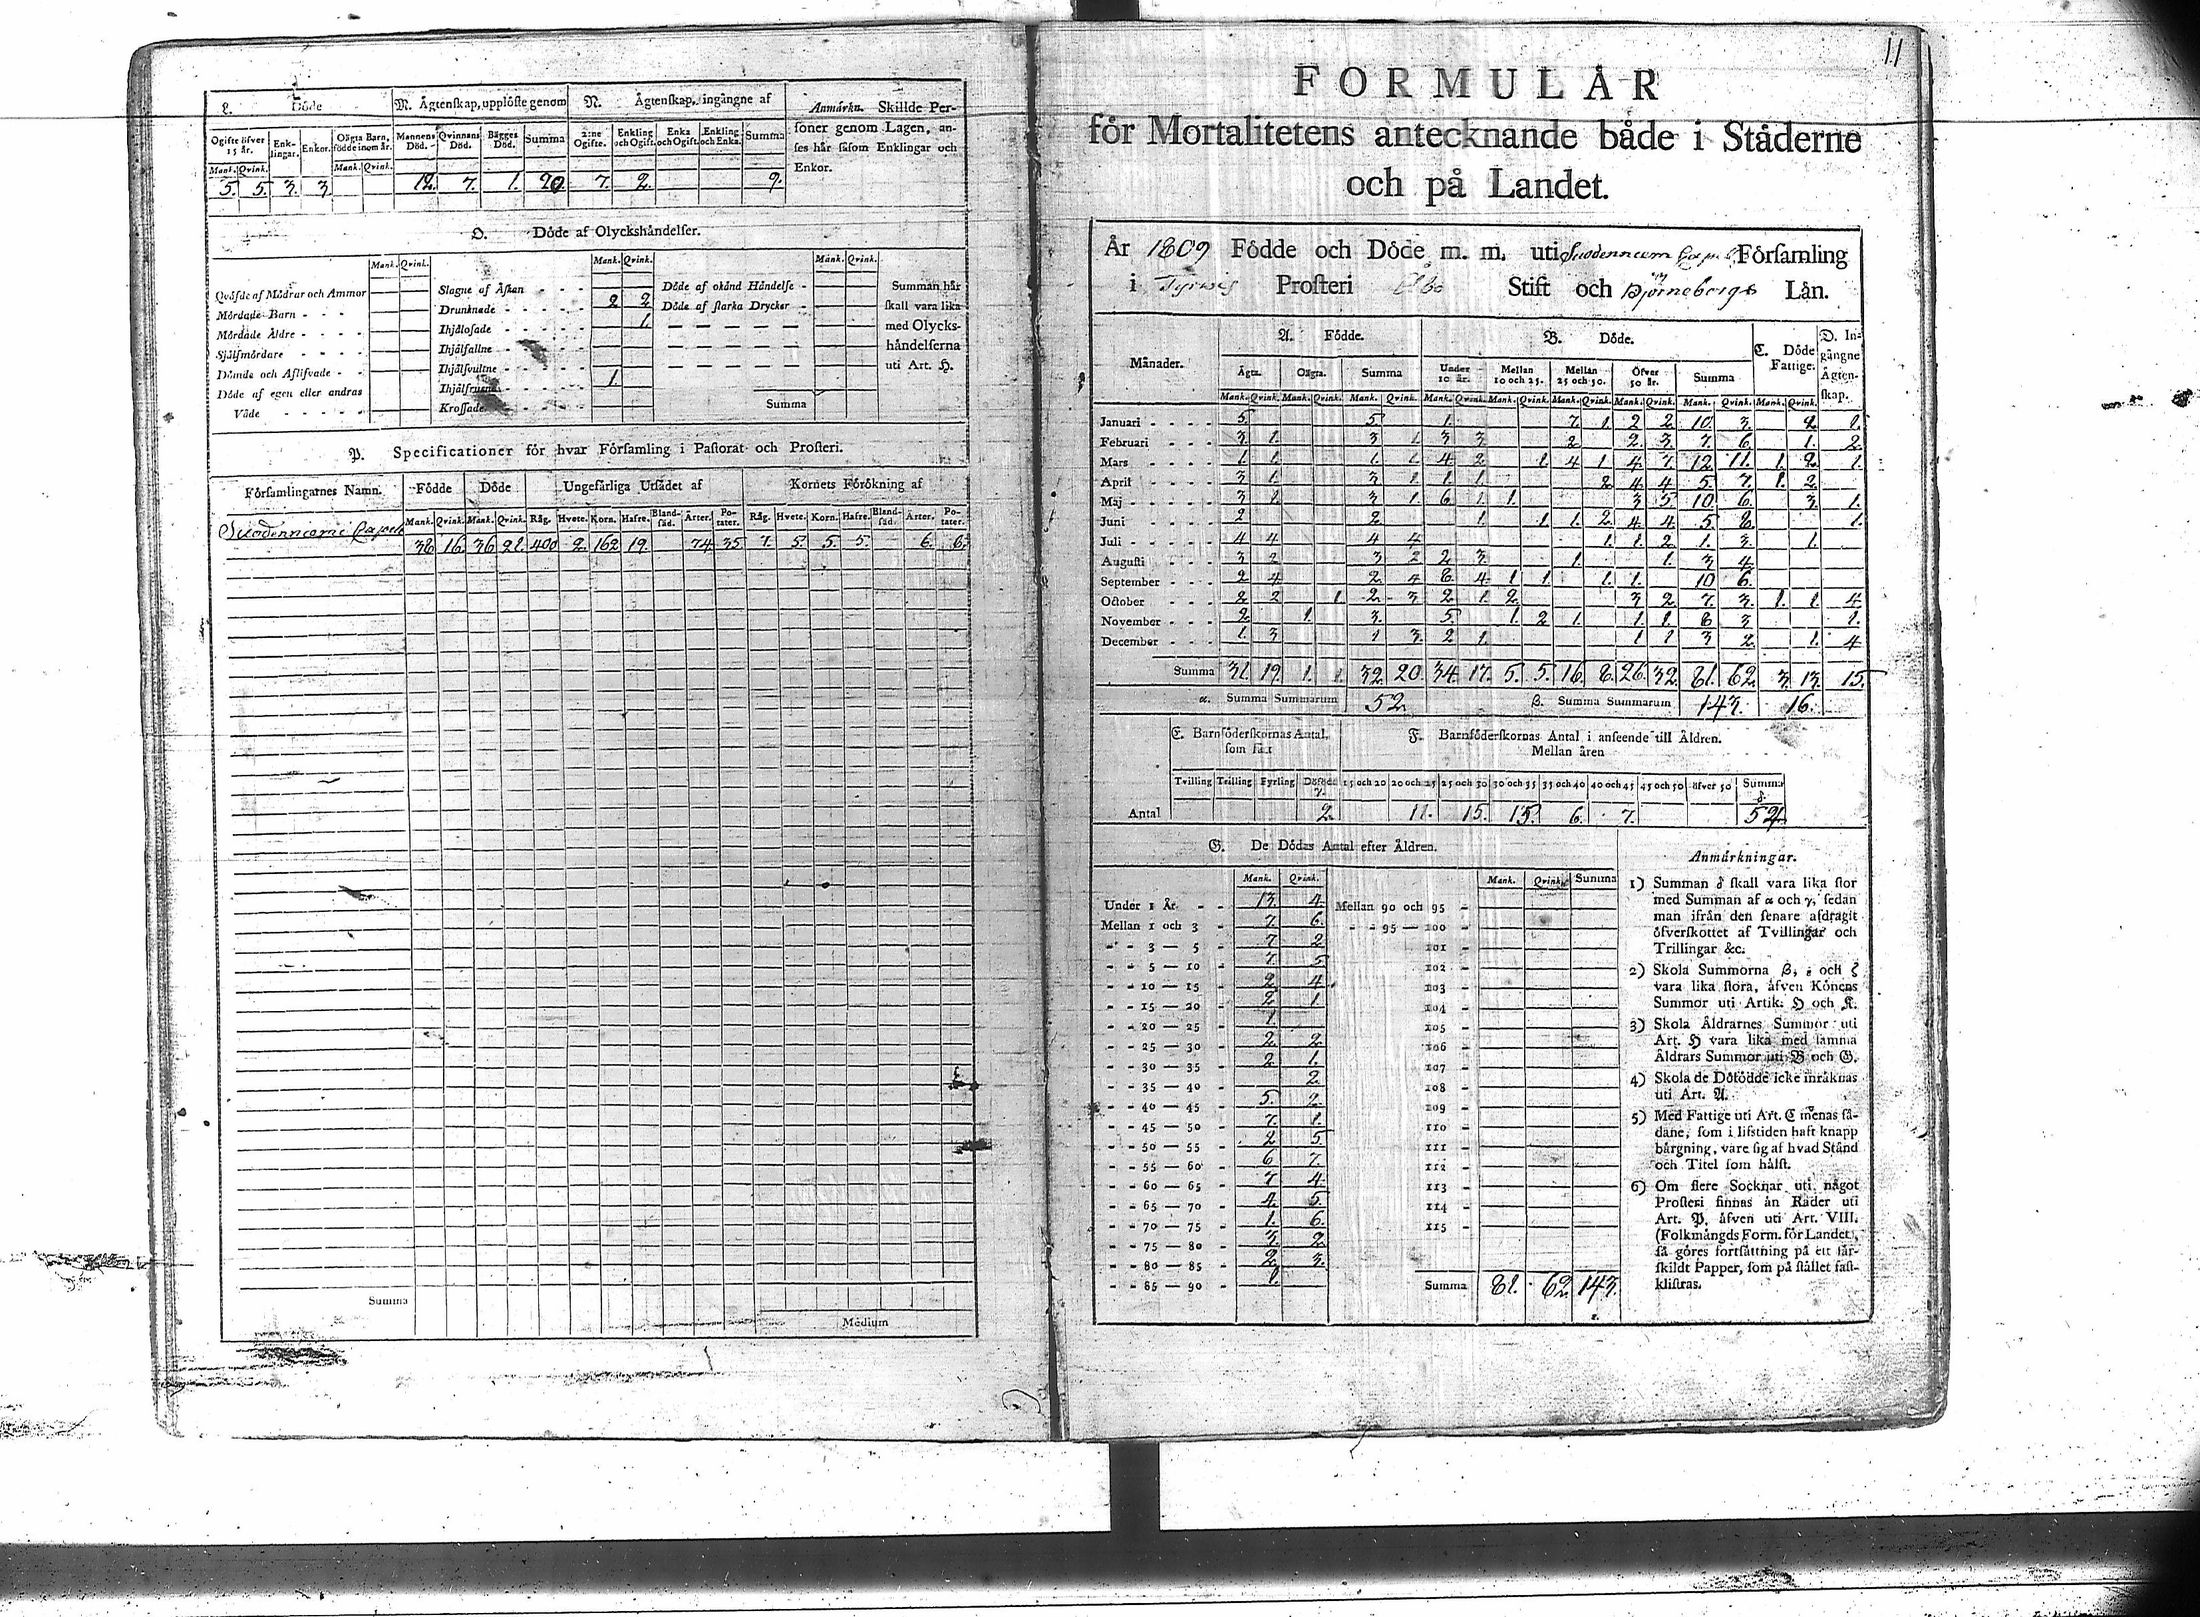 L. Döde
M. Ägtenskap, upplöste genom
N. Ägtenskap, ingångne af
Anmärkn. Skillde Personer
soner genom Lagen, an-
ses här såsom Enklingar och
Enkor.
Ogifte öfver 15 år. Enklingar. Enkor. Oägta Barn, födde inom år. Mannens Död. Qvinnans Död. Bägges Död. Summa 2:ne Ogifte. Enkling och Ogift. Enka och Ogift. Enkling och Enka. Summa
Mank. Qvink. Mank. Qvink.
5. 5. 3. 3. 12. 7. 1. 20 7. 2. 9.
O. Döde af Olyckshändelser.
Mank. Qvink. Mank. Qvink. Mank. Qvink.
Qväfde af Mödrar och Ammor
Mördade Barn - - -
Mördade Äldre - - - -
Själfmördare - - - -
Dömde och Aflifvade - -
Döde af egen eller andras
Våde - - - - -
Slagne af Åskan - - -
Drunknade - - - - - - 2 2
Ihjälosade - - - - - 1.
Ihjälfallne - - - - -
Ihjälsvultne - - - - -
Ihjälfrusne - - - - - 1.
Krossade
Döde af okänd Händelse -
Döde af starka Drycker -
Summa
Summan här
skall vara lika
med Olycks-
händelserna
uti Art. H.
P. Specificationer för hvar Församling i Pastorat och Prosteri.
Församlingarnes Namn. Födde Döde Ungefärliga Utsädet af Kornets Förökning af
Mank. Qvink. Mank. Qvink. Råg. Hvete. Korn. Hafre. Blandsäd. Ärter. Potater. Råg. Hvete. Korn. Hafre. Blandsäd. Ärter. Potater.
38 16. 36 21. 400 2. 162 19. 74 35 7. 5. 5. 5. 6. 6.
Summa
Medium
11
FORMULÄR
för Mortalitetens antecknande både i Städerne
och på Landet.
År 1809 Födde och Döde m. m. uti Suodenniemi Församling
i Tyrvis Prosteri Åbo Stift och Björneborgs Län.
Månader. A. Födde. B. Döde. C. Döde Fattige. D. Ingångne Ägtenskap.
Ägta. Oägta. Summa Under 10 år. Mellan 10 och 25. Mellan 25 och 50. Öfver 50 år. Summa
Mank. Qvink. Mank. Qvink. Mank. Qvink. Mank. Qvink. Mank. Qvink. Mank. Qvink. Mank. Qvink. Mank. Qvink. Mank. Qvink.
Januari - - - - 5. 5. 1. 7. 1. 2 2 10. 3. 2. 1.
Februari - - - 3. 1. 3 1 3 3 2 2. 3. 7. 6. 1. 2
Mars - - - - 1. 1. 1. 1. 4 2. 1. 4 1. 4. 7. 12. 11. 1. 2. 1.
April - - - - 3. 1. 3 1. 1. 1. 2 4 4 5. 7. 1. 2.
Maj - - - - 3. 1. 3 1 6 1. 1. 3 5. 10. 6. 3. 1.
Juni - - - - 2 2. 1. 1 1. 2. 4. 4. 5 8. 1.
Juli - - - - 4 4 4 4 1. 1. 2 1. 3. 1.
Augusti - - - 3 2 3 2 2 3. 1. 1. 3 4.
September - - - 2 4. 2. 4 8. 4. 1. 1. 1. 1. 10 6.
October - - - 2 2 1. 2. 3. 2 1. 2. 3 2. 7. 3. 1. 1. 4.
November - - - 2. 1. 3. 5. 1. 2 1. 1. 1. 8 3 1.
December - - - 1. 3 1 3. 2 1. 1 1 3 2. 1. 4
Summa 31. 19. 1. 1. 32 20. 34. 17. 5. 5. 16. 8. 26. 32. 81. 62. 3. 13. 15.
α. Summa Summarum 52. β. Summa Summarum 143. 16.
E. Barnföderskornas Antal, som fått
F. Barnföderskornas Antal i anseende till Åldren.
Mellan åren
Tvilling Trilling Fyrling Dödfödd γ. 15 och 20 20 och 25 25 och 30 30 och 35 35 och 40 40 och 45 45 och 50 öfver 50 Summa δ
Antal 2. 11. 15. 15. 6. 7. 54.
G. De Dödas Antal efter Åldren.
Mank. Qvink. Mank. Qvink. Summa
Under 1 År - - 13. 4. Mellan 90 och 95 -
Mellan 1 och 3 - 7. 6. - - 95 — 100 -
- - 3 — 5 - 7 2 101 -
- - 5 — 10 - 7. 5 102 -
- - 10 — 15 - 2 4 103 -
- - 15 — 20 - 2 1. 104 -
- - 20 — 25 - 1. 105 -
- - 25 — 30 - 2. 2 106 -
- - 30 — 35 - 2 1. 107 -
- - 35 — 40 - 2. 108 -
- - 40 — 45 - 5. 2. 109 -
- - 45 — 50 - 7. 1. 110 -
- - 50 — 55 - 2 5. 111 -
- - 55 — 60 - 6 7. 112 -
- - 60 — 65 - 7 4. 113 -
- - 65 — 70 - 4. 5. 114 -
- - 70 — 75 - 1. 6. 115 -
- - 75 — 80 - 3. 2
- - 80 — 85 - 2. 3.
- - 85 — 90 - 1. Summa 81. 62 143.
Anmärkningar.
1) Summan δ skall vara lika stor
med Summan af α och γ, sedan
man ifrån den senare afdragit
öfverskottet af Tvillingar och
Trillingar &c.
2) Skola Summorna β, ε och ζ
vara lika stora, äfven Könens
Summor uti Artik. H och K.
3) Skola Åldrarnes Summor uti
Art. H vara lika med samma
Åldrars Summor uti B och G.
4) Skola de Dödfödde icke inräknas
uti Art. A.
5) Med Fattige uti Art. C menas så-
dane, som i lifstiden haft knapp
bärgning, vare sig af hvad Stånd
och Titel som hälst.
6) Om flere Socknar uti något
Prosteri finnas än Rader uti
Art. P, äfven uti Art. VIII.
(Folkmängds Form. för Landet),
så göres fortsättning på ett sär-
skildt Papper, som på stället fast-
klistras.